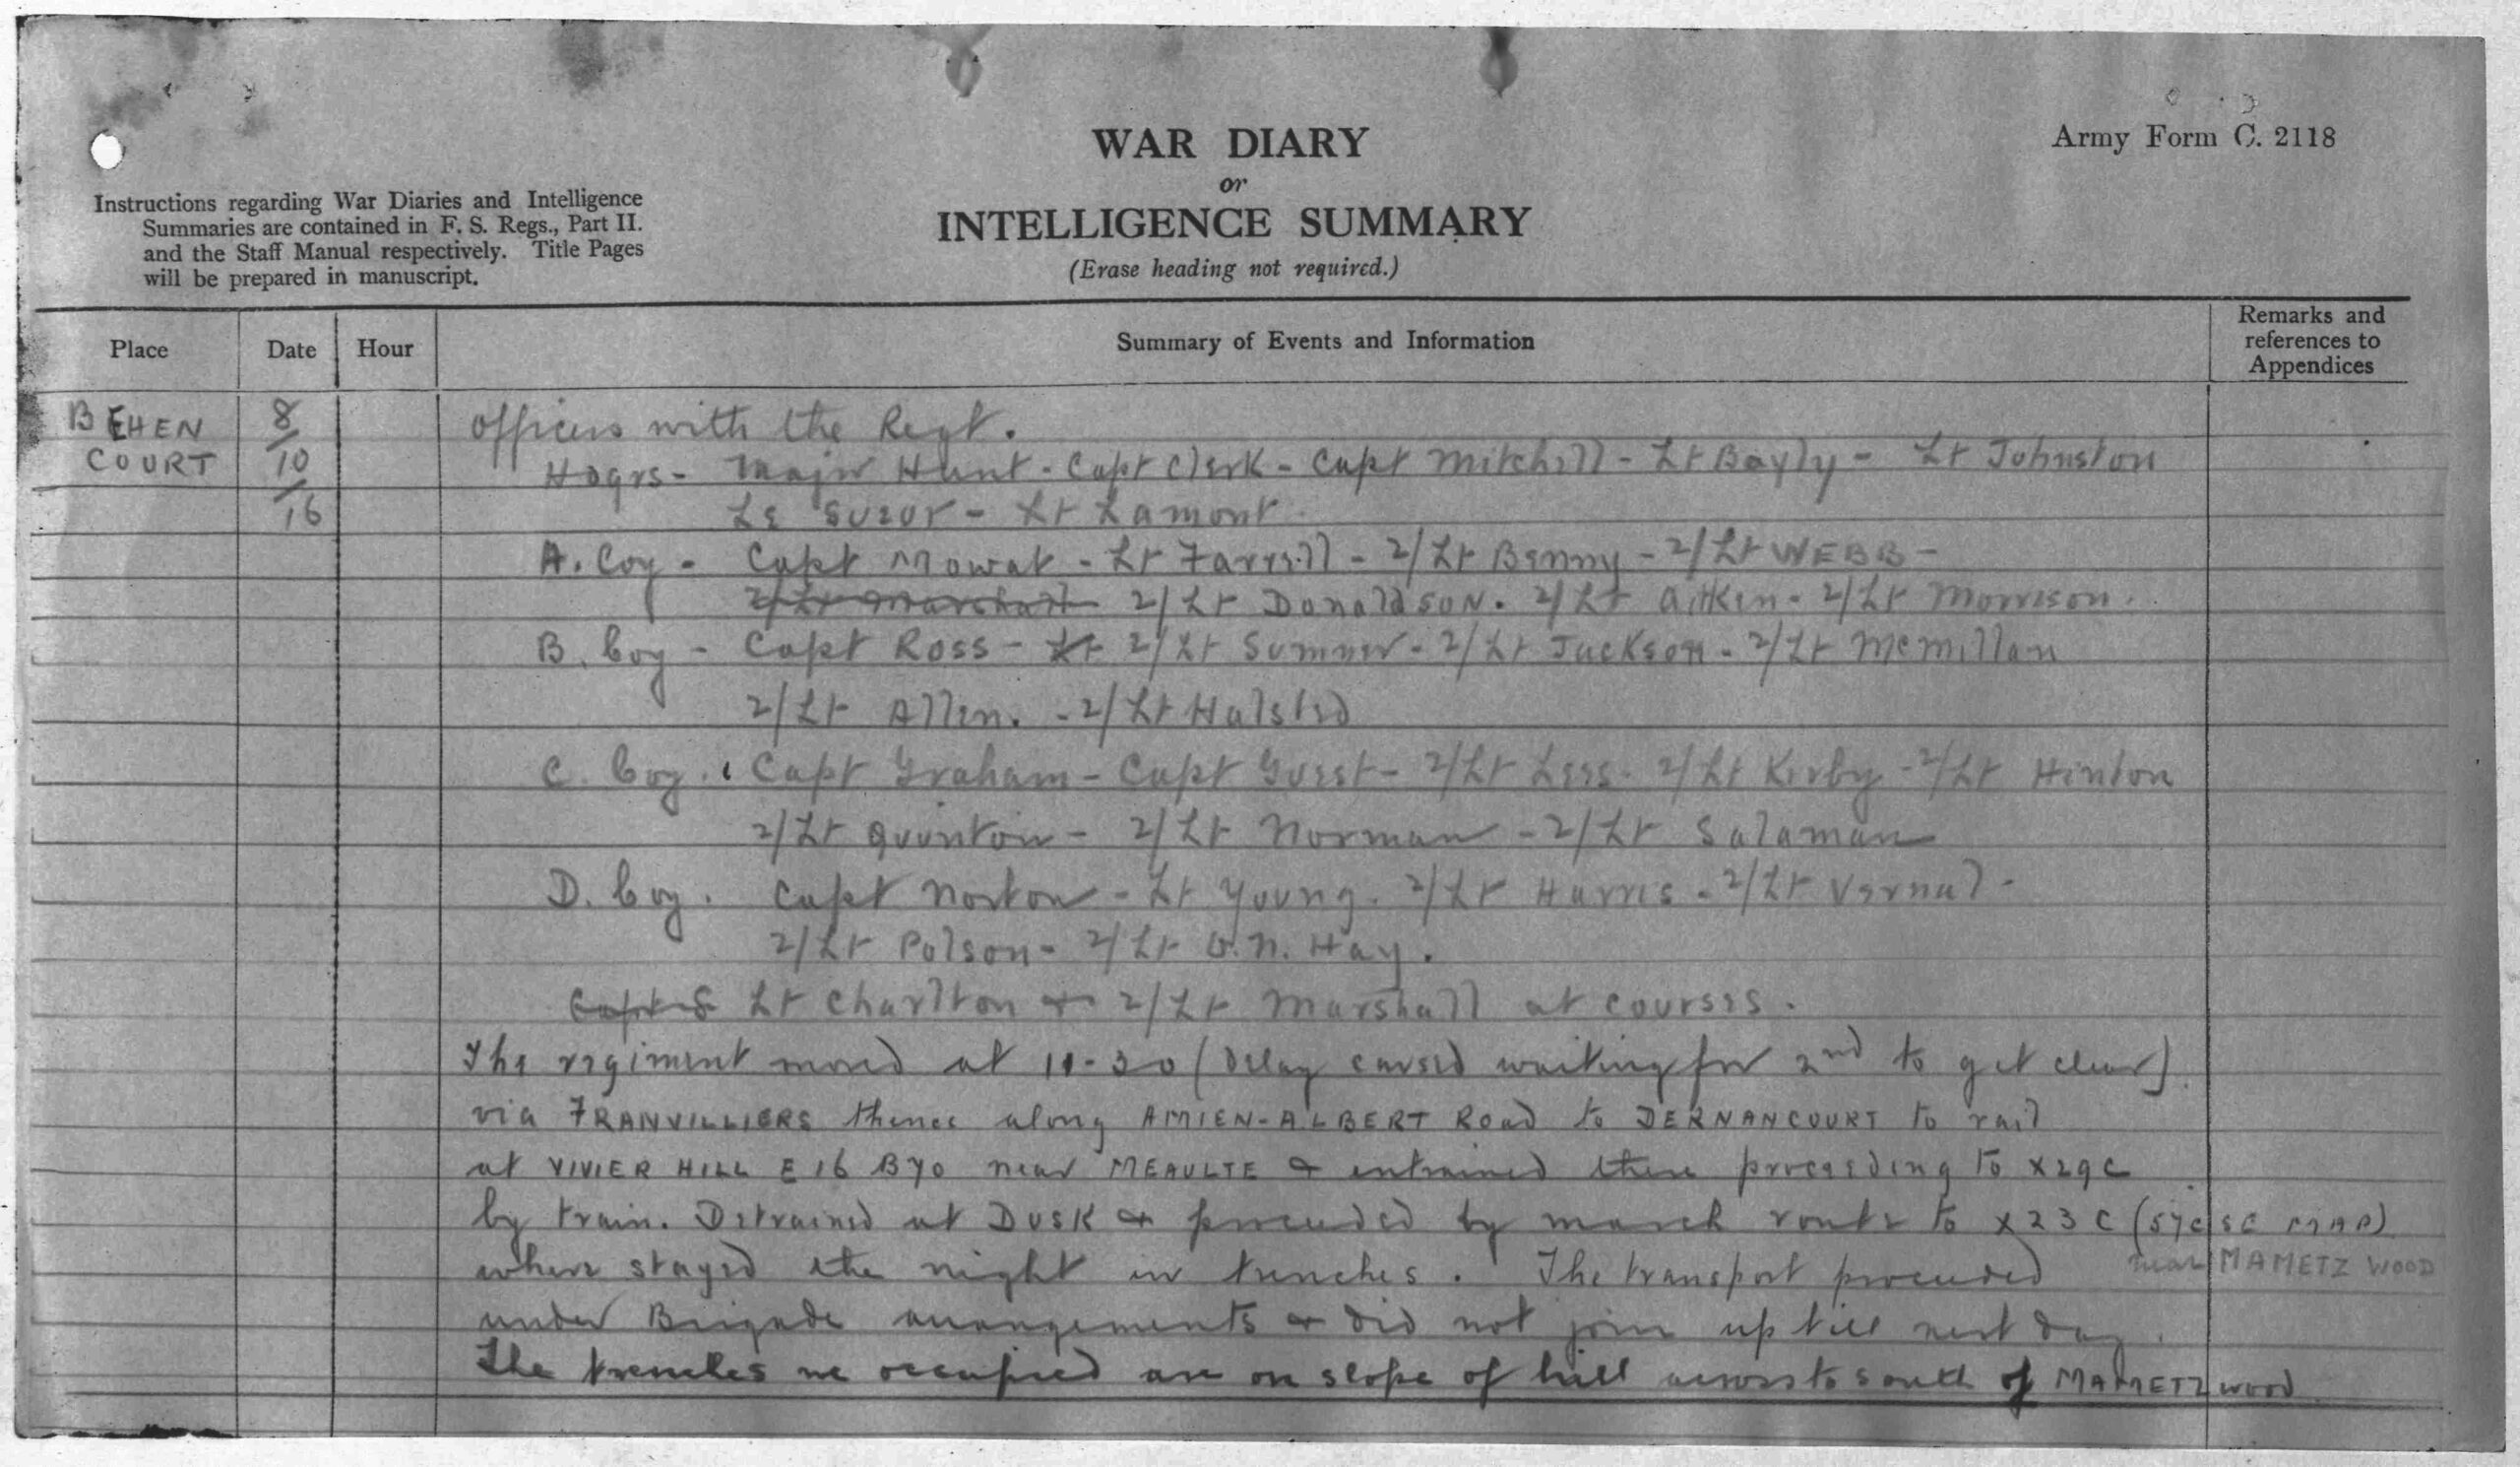 WAR DIARY
or
INTELLIGENCE SUMMARY
(Erase heading not required.)
Army Form C. 2118
Instructions regarding War Diaries and Intelligence
Summaries are contained in F. S. Regs., Part II.
and the Staff Manual respectively. Title Pages
will be prepared in manuscript.
Place Date Hour Summary of Events and Information Remarks and
references to
Appendices
BEHEN
COURT
8/10/16
Officers with the Regt.
Hdqrs - Major Hunt - Capt Clerk - Capt Mitchell - Lt Bayly - Lt Johnston
Le Sueur - Lt Lamont.
A. Coy - Capt Mowat - Lt Farrell - 2/Lt Benny - 2/Lt WEBB -
2/Lt Marshall 2/Lt Donaldson. 2/Lt Aitken - 2/Lt Morrison.
B. Coy - Capt Ross - Lt 2/Lt Sumner - 2/Lt Jackson - 2/Lt McMillan
2/Lt Allen. - 2/Lt Halsted
C. Coy. Capt Graham - Capt Guest - 2/Lt Lees. 2/Lt Kirby - 2/Lt Hinton
2/Lt Quinton - 2/Lt Norman - 2/Lt Salaman
D. Coy. Capt Norton - Lt Young. 2/Lt Harris - 2/Lt Vernal -
2/Lt Polson - 2/Lt O.N. Hay.
Lt Charlton & 2/Lt Marshall at courses.
The regiment moved at 11-30 (Delay caused waiting for 2nd to get clear)
via FRANVILLIERS thence along AMIEN-ALBERT Road to DERNANCOURT to rail
at VIVIER HILL E 16 B 70 near MEAULTE & entrained there proceeding to X29C
by train. Detrained at DUSK & proceeded by march route to X23C (57c SE MAP)
near MAMETZ WOOD
where stayed the night in trenches. The transport proceeded
under Brigade arrangements & did not join up till next day.
The trenches we occupied are on slope of hill across to south of MAMETZ wood